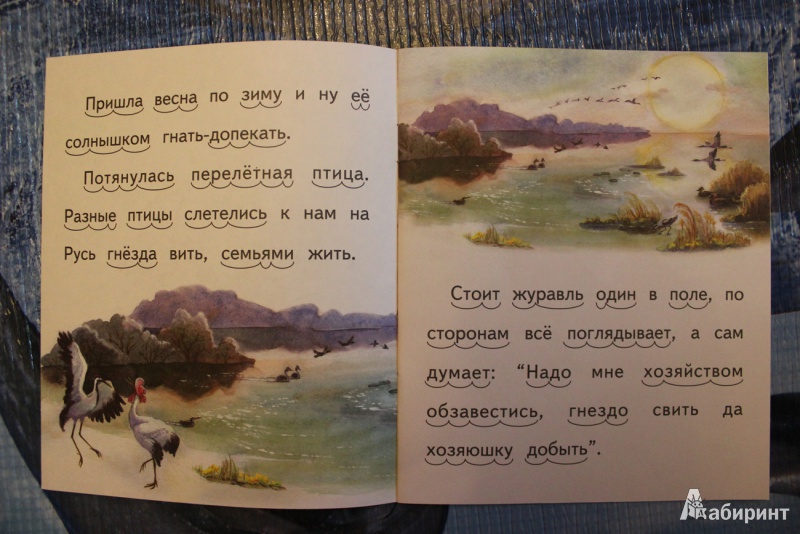 Пришла весна по зиму и ну её
солнышком гнать-допекать.
Потянулась перелётная птица.
Разные птицы слетелись к нам на
Русь гнёзда вить, семьями жить.
Стоит журавль один в поле, по
сторонам всё поглядывает, а сам
думает: “Надо мне хозяйством
обзавестись, гнездо свить да
хозяюшку добыть”.
Лабиринт